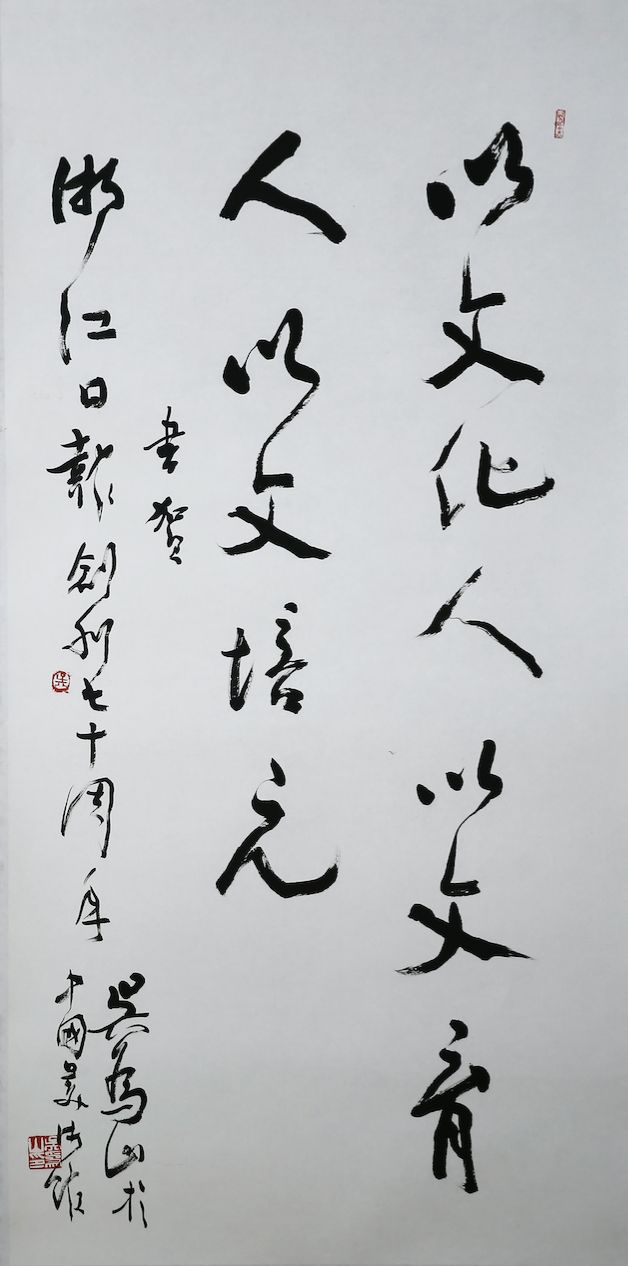 以文化人以文育
人以文培元
書賀
浙江日報創刊七十周年
吳為山於
中國美術館